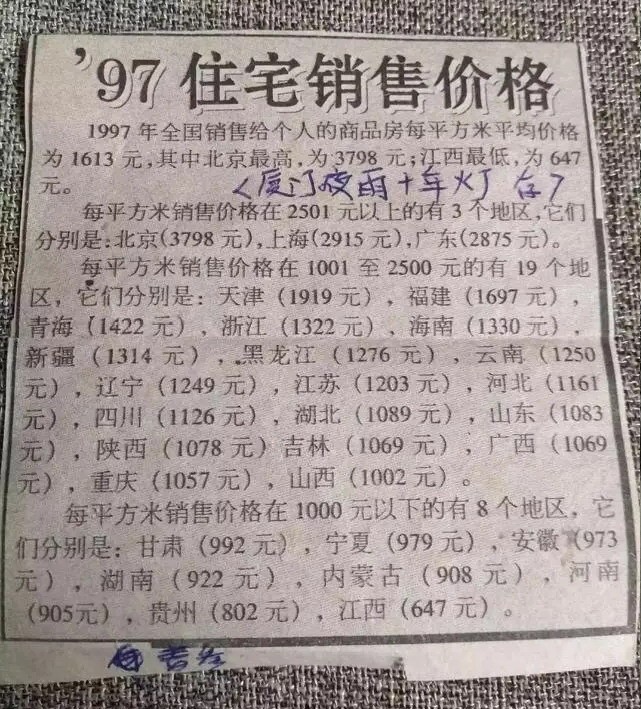 '97 住宅销售价格
1997 年全国销售给个人的商品房每平方米平均价格
为 1613 元,其中北京最高,为 3798 元;江西最低,为 647
元。
<厦门夜雨十年灯 存>
每平方米销售价格在 2501 元以上的有 3 个地区,它们
分别是:北京(3798 元),上海(2915 元),广东(2875 元)。
每平方米销售价格在 1001 至 2500 元的有 19 个地
区，它们分别是：天津（1919 元），福建（1697 元），
青海（1422 元），浙江（1322 元），海南（1330 元），
新疆（1314 元），黑龙江（1276 元），云南（1250
元），辽宁（1249 元），江苏（1203 元），河北（1161
元），四川（1126 元），湖北（1089 元），山东（1083
元），陕西（1078 元）吉林（1069 元），广西（1069
元），重庆（1057 元），山西（1002 元）。
每平方米销售价格在 1000 元以下的有 8 个地区，它
们分别是：甘肃（992 元），宁夏（979 元），安徽（973
元），湖南（922 元），内蒙古（908 元），河南
（905元），贵州（802 元），江西（647 元）。